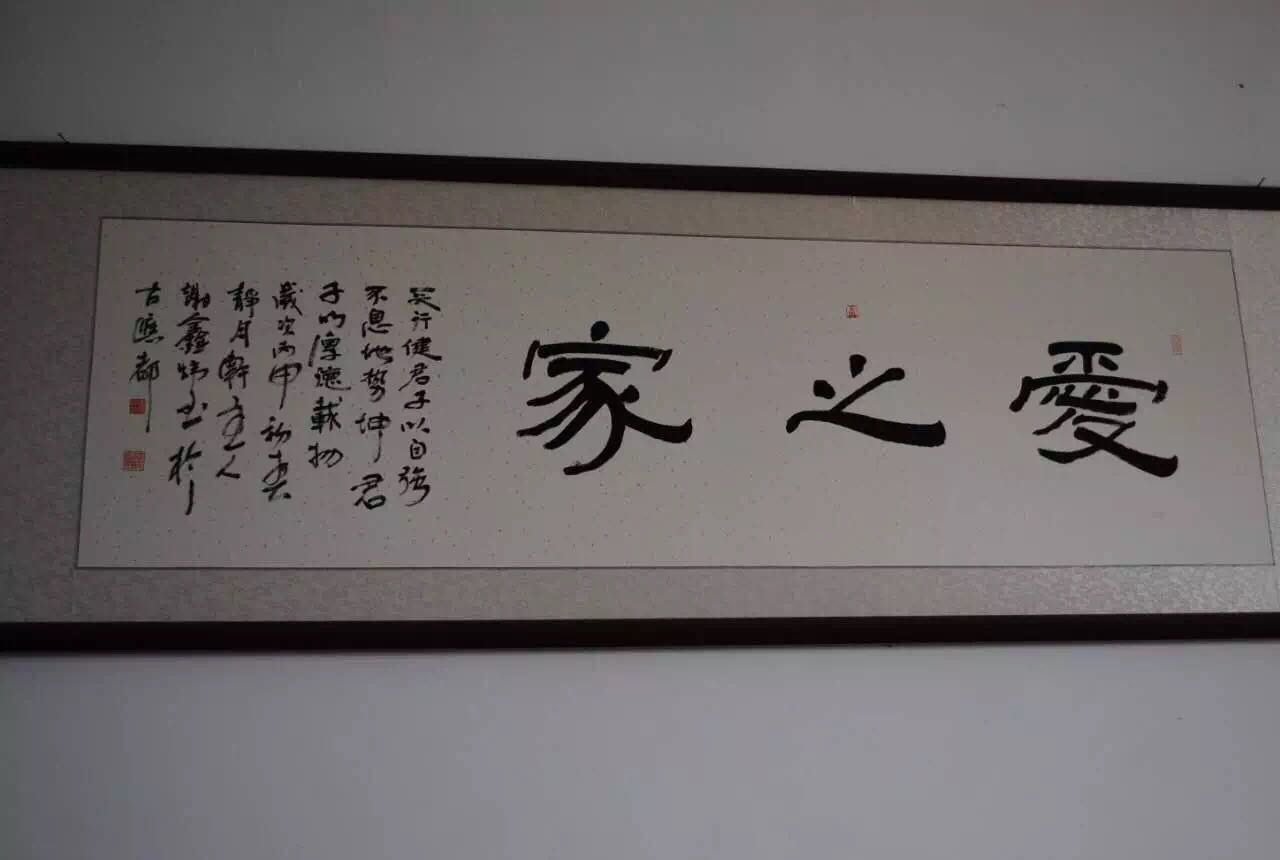 愛之家
天行健君子以自強
不息地勢坤君
子以厚德載物
歲次丙申初春
靜月軒主人
謝鑫炜书於
古應都